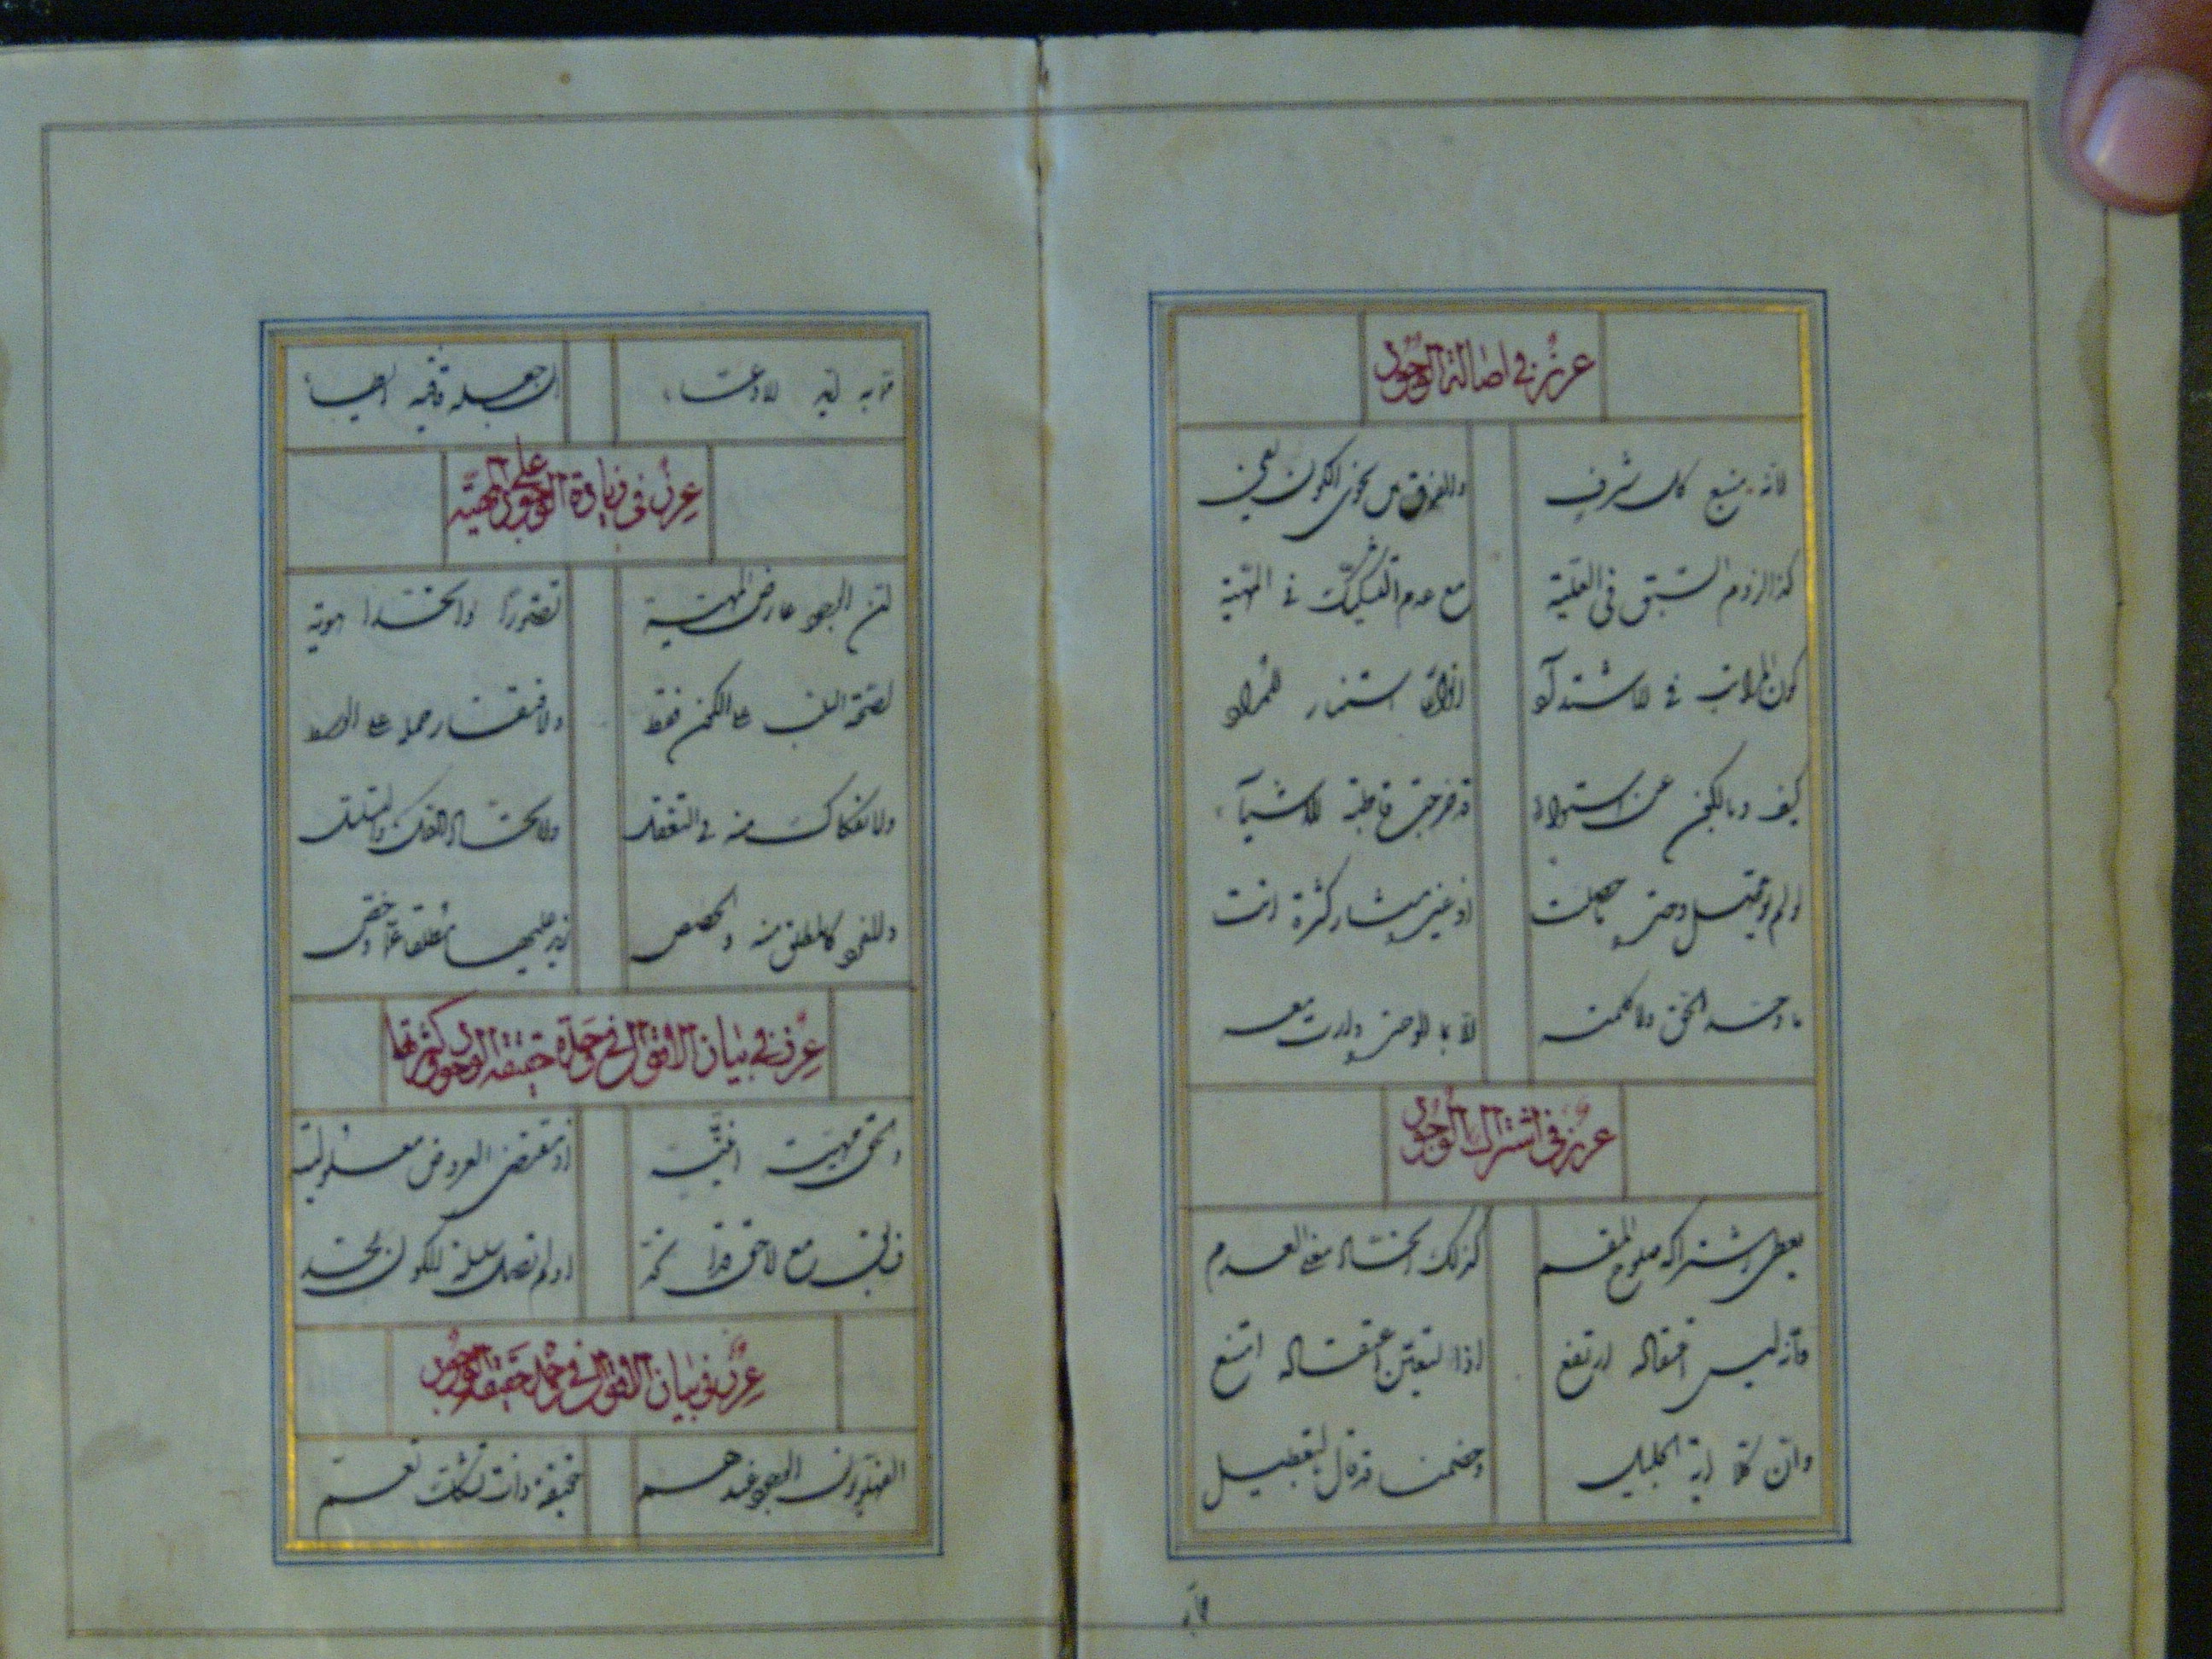 غرر في اصالة الوجود
لانه منبع كل شرف والفرق بين نحوى الكون يفى
كذا لزوم السبق فى العلية مع عدم التشكيك فى المهية
كون المراتب فى الاشتداد انواعا استنار للمراد
كيف وبالكون عن استواء قد خرجت قاطبة الاشياء
لو لم يؤصل وحدة ما حصلت اذ غيره مثار كثرة اتت
ما وحد الحق ولا كلمته الا بما الوحدة دارت معه
غرر فى اشتراك الوجود
يعطى اشتراكه صلوح المقسم كذلك اتحاد معنى العدم
وانه ليس اعتقاده ارتفع اذا التعين اعتقاده امتنع
وان كلا اية الجليل وخصمنا قد قال بالتعطيل
مما به ايد الادعاء ان جعله قافية ايطاء
غرر فى زيادة الوجود على المهية
ان الوجود عارض المهية تصورا واتحدا هوية
لصحة السلب على الكون فقط ولافتقار حمله على الوسط
ولانفكاك منه فى التعقل ولاتحاد الكل والتسلسل
والفرد كالمطلق منه والحصص زيد عليها مطلقا عما وخص
غرر فى بيان الاقوال فى وحدة حقيقة الوجود وكثرتها
والحق مهيته انيته اذ مقتضى العروض معلوليته
فسابق مع لاحق قد اتحد او لم تصل سلسلة الكون لحد
غرر فى بيان الاقوال فى وحدة حقيقة الوجود
الفهلويون الوجود عندهم حقيقة ذات تشكك تعم